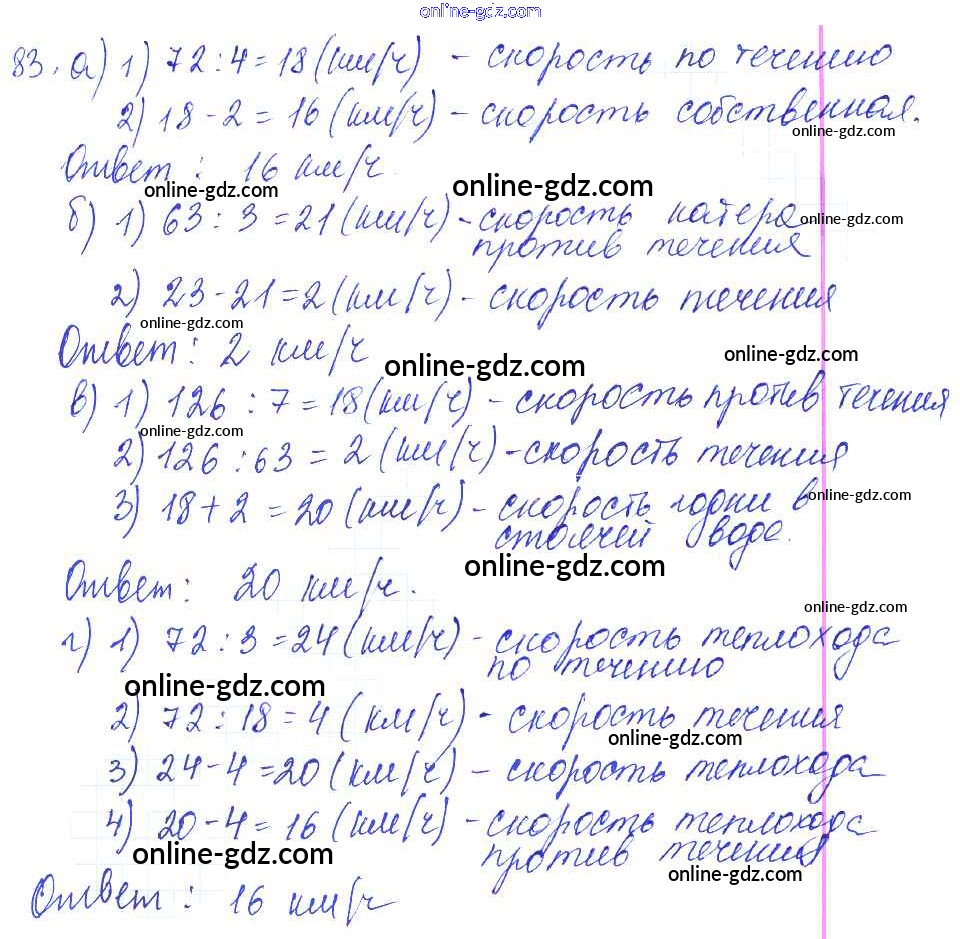 online-gdz.com
83. а) 1) 72 : 4 = 18 (км/ч) - скорость по течению
2) 18 - 2 = 16 (км/ч) - скорость собственная.
online-gdz.com
Ответ : 16 км/ч.
online-gdz.com online-gdz.com
б) 1) 63 : 3 = 21 (км/ч) - скорость катера
online-gdz.com
против течения
2) 23 - 21 = 2 (км/ч) - скорость течения
online-gdz.com
Ответ : 2 км/ч
online-gdz.com online-gdz.com
в) 1) 126 : 7 = 18 (км/ч) - скорость против течения
online-gdz.com
2) 126 : 63 = 2 (км/ч) - скорость течения
3) 18 + 2 = 20 (км/ч) - скорость лодки в
online-gdz.com
стоячей воде.
online-gdz.com
Ответ : 20 км/ч.
online-gdz.com
г) 1) 72 : 3 = 24 (км/ч) - скорость теплохода
по течению
online-gdz.com
2) 72 : 18 = 4 (км/ч) - скорость течения
online-gdz.com
3) 24 - 4 = 20 (км/ч) - скорость теплохода
4) 20 - 4 = 16 (км/ч) - скорость теплохода
online-gdz.com
против течения
online-gdz.com
Ответ : 16 км/ч